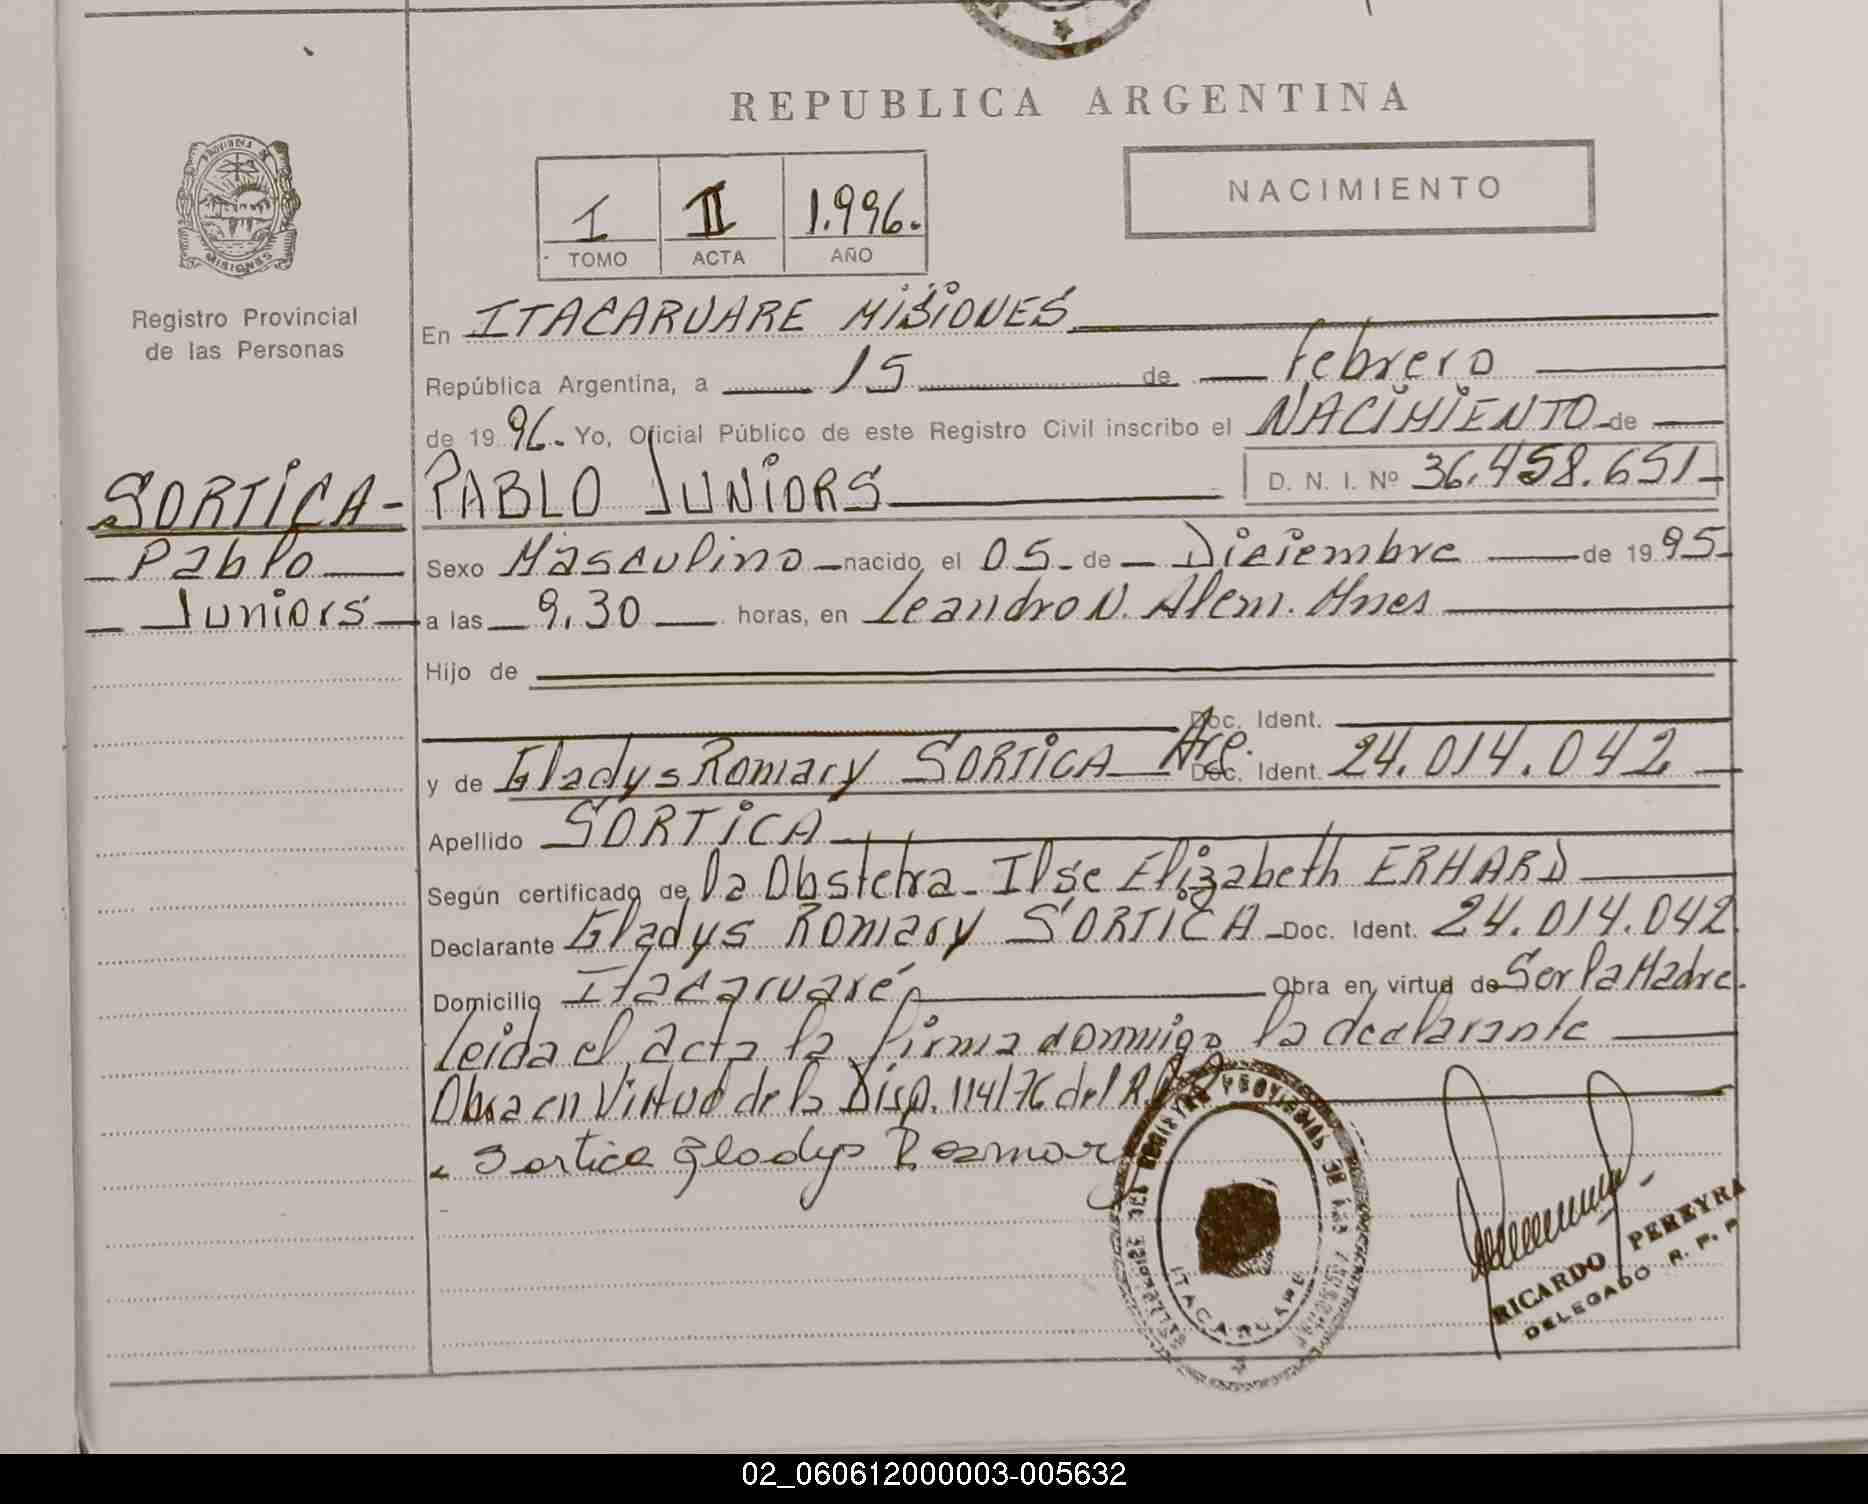 REPUBLICA ARGENTINA
PROVINCIA DE
MISIONES
Registro Provincial
de las Personas
I II 1.996.
TOMO ACTA AÑO
NACIMIENTO
En ITACARUARE MISIONES
República Argentina, a 15 de febrero
de 1996. Yo, Oficial Público de este Registro Civil inscribo el NACIMIENTO de
SORTICA-
Pablo
Juniors
PABLO JUNIORS D. N. I. Nº 36.458.651
Sexo Masculino nacido el 05 de Diciembre de 1995
a las 9,30 horas, en Leandro N. Alem. Mnes
Hijo de
Doc. Ident.
y de Gladys Romary SORTICA Arg. Doc. Ident. 24.014.042
Apellido SORTICA
Según certificado de la Obstetra Ilse Elizabeth ERHARD
Declarante Gladys Romary SORTICA Doc. Ident. 24.014.042
Domicilio Itacaruaré, Obra en virtud de Ser la Madre.
Leida el acta la firma conmigo la declarante
Obra en Virtud de la Disp. 114/76 del
Sortica Gladys
ITACARUARE
RICARDO PEREYRA
DELEGADO R. P. P.
02_060612000003-005632